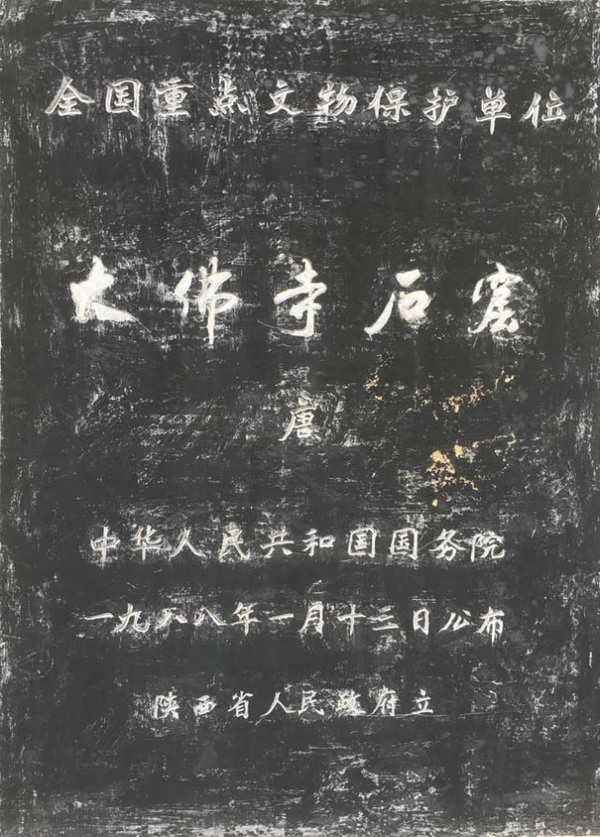 全国重点文物保护单位
大佛寺石窟
唐
中华人民共和国国务院
一九八八年一月十三日公布
陕西省人民政府立